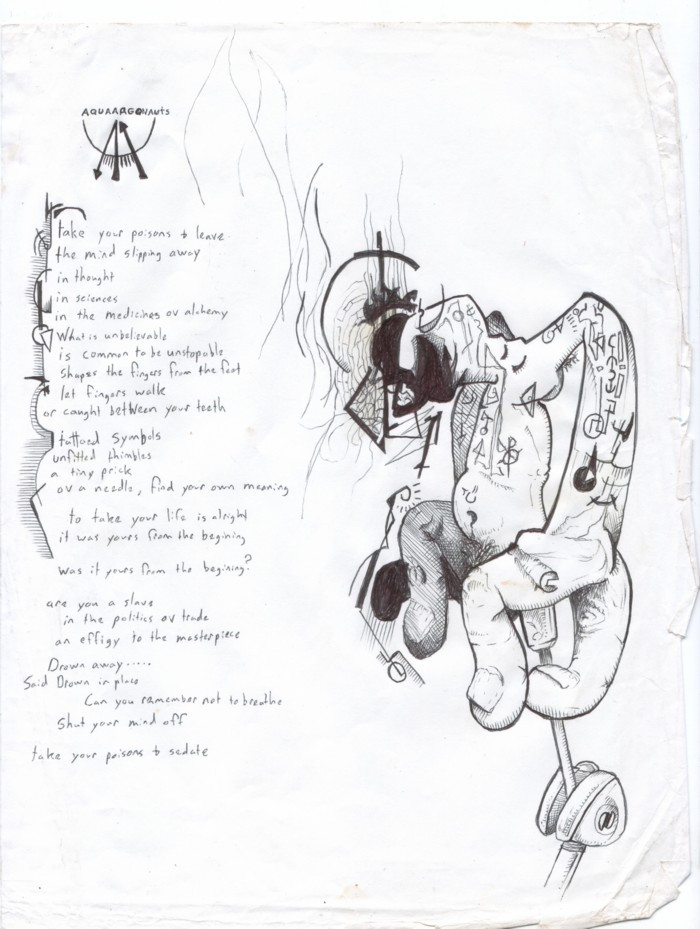 AQUAARGONAUTS
take your poisons to leave
the mind slipping away
in thought
in sciences
in the medicines ov alchemy
What is unbelievable
is common to be unstopable
Shapes the fingers from the feet
let fingers walk
or caught between your teeth
tattoed symbols
unfitted thimbles
a tiny prick
ov a needle, find your own meaning
to take your life is alright
it was yours from the begining
was it yours from the begining?
are you a slave
in the politics ov trade
an effigy to the masterpiece
Drown away.....
Said Drown in place
Can you remember not to breathe
Shut your mind off
take your poisons to sedate